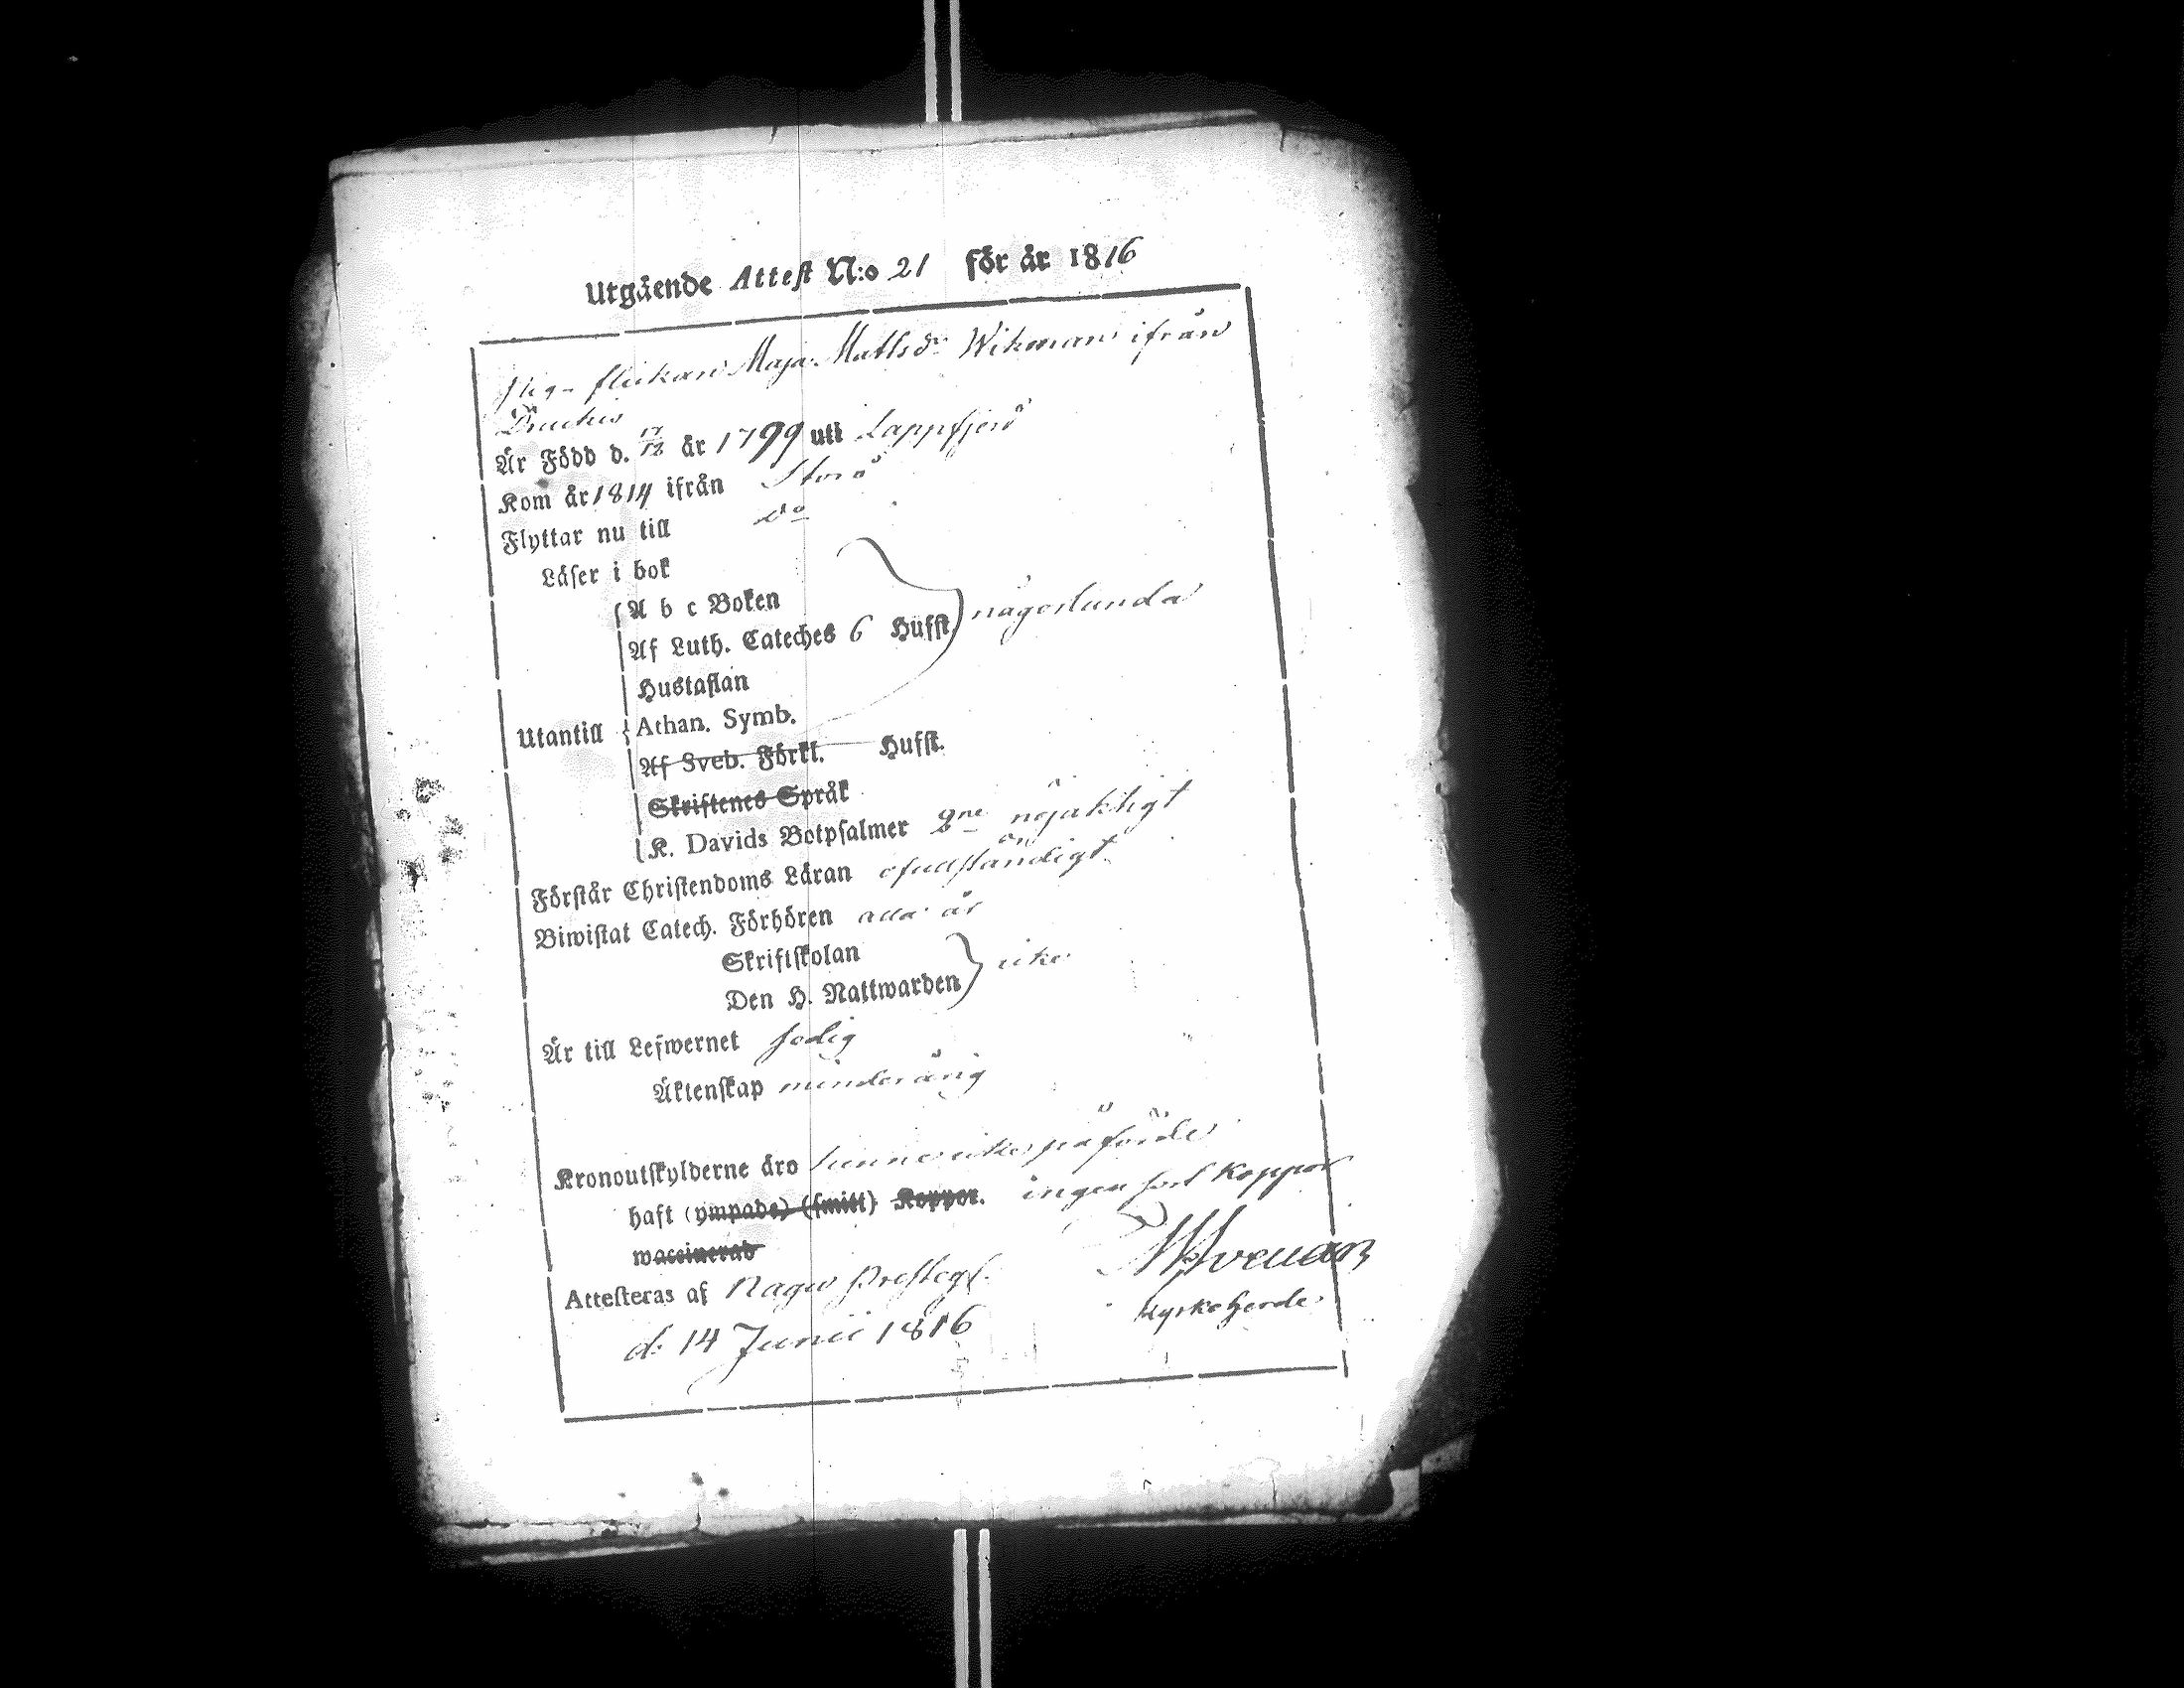 Utgående Attest N:o 21 för år 1816
flickan Maja Matlsdr Wikman ifrån
Är Född d. 17/12 år 1799 uti Lappfjerd
Kom år 1814 ifrån Storå
Flyttar nu till Do
Läser i bok
A b c Boken
Af Luth. Cateches 6 Hufst. någorlunda
Hustaflan
Utantill Athan. Symb.
Af Sveb. Förkl. Hufst.
Skriftenes Språk
K. Davids Botpsalmer 2ne nöjaktigt
Förstår Christendoms Läran ofullständigt
Biwistat Catech. Förhören alla år
Skriftskolan
Den H. Nattwarden icke
Är till Lefwernet sedig
Äktenskap minderårig
Kronoutskylderne äro henne icke påförde
haft (ympade) (smitt) Koppor. ingen sort Koppor
waccinerad
Attesteras af Nagu Prestegl.
Kyrkoherde
d: 14 Junii 1816